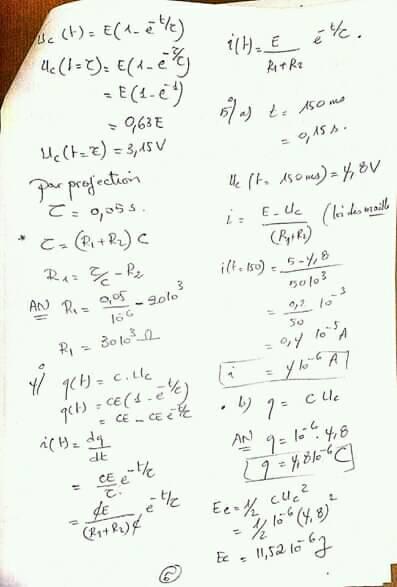 Uc(t) = E(1 - e^-t/τ)
Uc(t=τ) = E(1 - e^-τ/τ)
= E(1 - e^-1)
= 0,63E
Uc(t=τ) = 3,15V
par projection
τ = 0,05 s.
* τ = (R1+R2) C
R1 = τ/C - R2
AN R1 = 0,05/10^-6 - 20 10^3
R1 = 30 10^3 Ω
4/ q(t) = C.Uc
q(t) = CE(1 - e^-t/τ)
= CE - CE e^-t/τ
i(t) = dq/dt
= CE/τ e^-t/τ
= CE/(R1+R2)C e^-t/τ
i(t) = E/R1+R2 e^-t/τ.
5°/ a) t = 150 ms
= 0,15 s.
Uc(t = 150ms) = 4,8V
i = E - Uc/(R1+R2) (loi des maille
i(t=150) = 5-4,8/50 10^3
= 0,2/50 10^-3
= 0,4 10^-5 A
i = 4 10^-6 A
• b) q = C Uc
AN q = 10^-6 . 4,8
q = 4,8 10^-6 C
Ee = 1/2 C Uc^2
= 1/2 10^-6 (4,8)^2
Ee = 11,52 10^-6 J
6